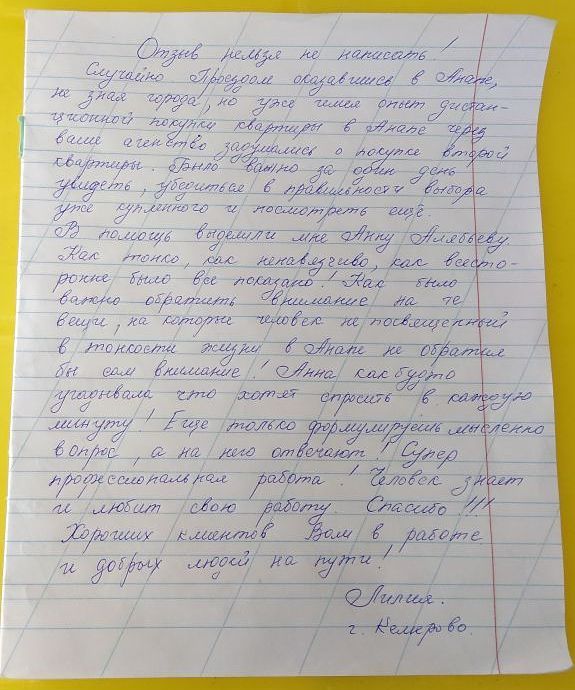 Отзыв нельзя не написать!
Случайно Проездом оказавшись в Анапе,
не зная города, но уже имея опыт дистан-
ционной покупки квартиры в Анапе через
ваше агенство задумались о покупке второй
квартиры. Было важно за один день
увидеть, убедиться в правильности выбора
уже купленного и посмотреть ещё.
В помощь выделили мне Анну Алябьеву.
Как тонко, как ненавязчиво, как всесто-
ронне было все показано! Как было
важно обратить внимание на те
вещи, на которые человек не посвященный
в тонкости жизни в Анапе не обратил
бы сам внимание! Анна как будто
угадывала что хотят спросить в каждую
минуту! Еще только формулируешь мысленно
вопрос, а на него отвечают! Супер
профессиональная работа! Человек знает
и любит свою работу. Спасибо!!!
Хороших клиентов Вам в работе
и добрых людей на пути!
Лилия.
г. Кемерово.